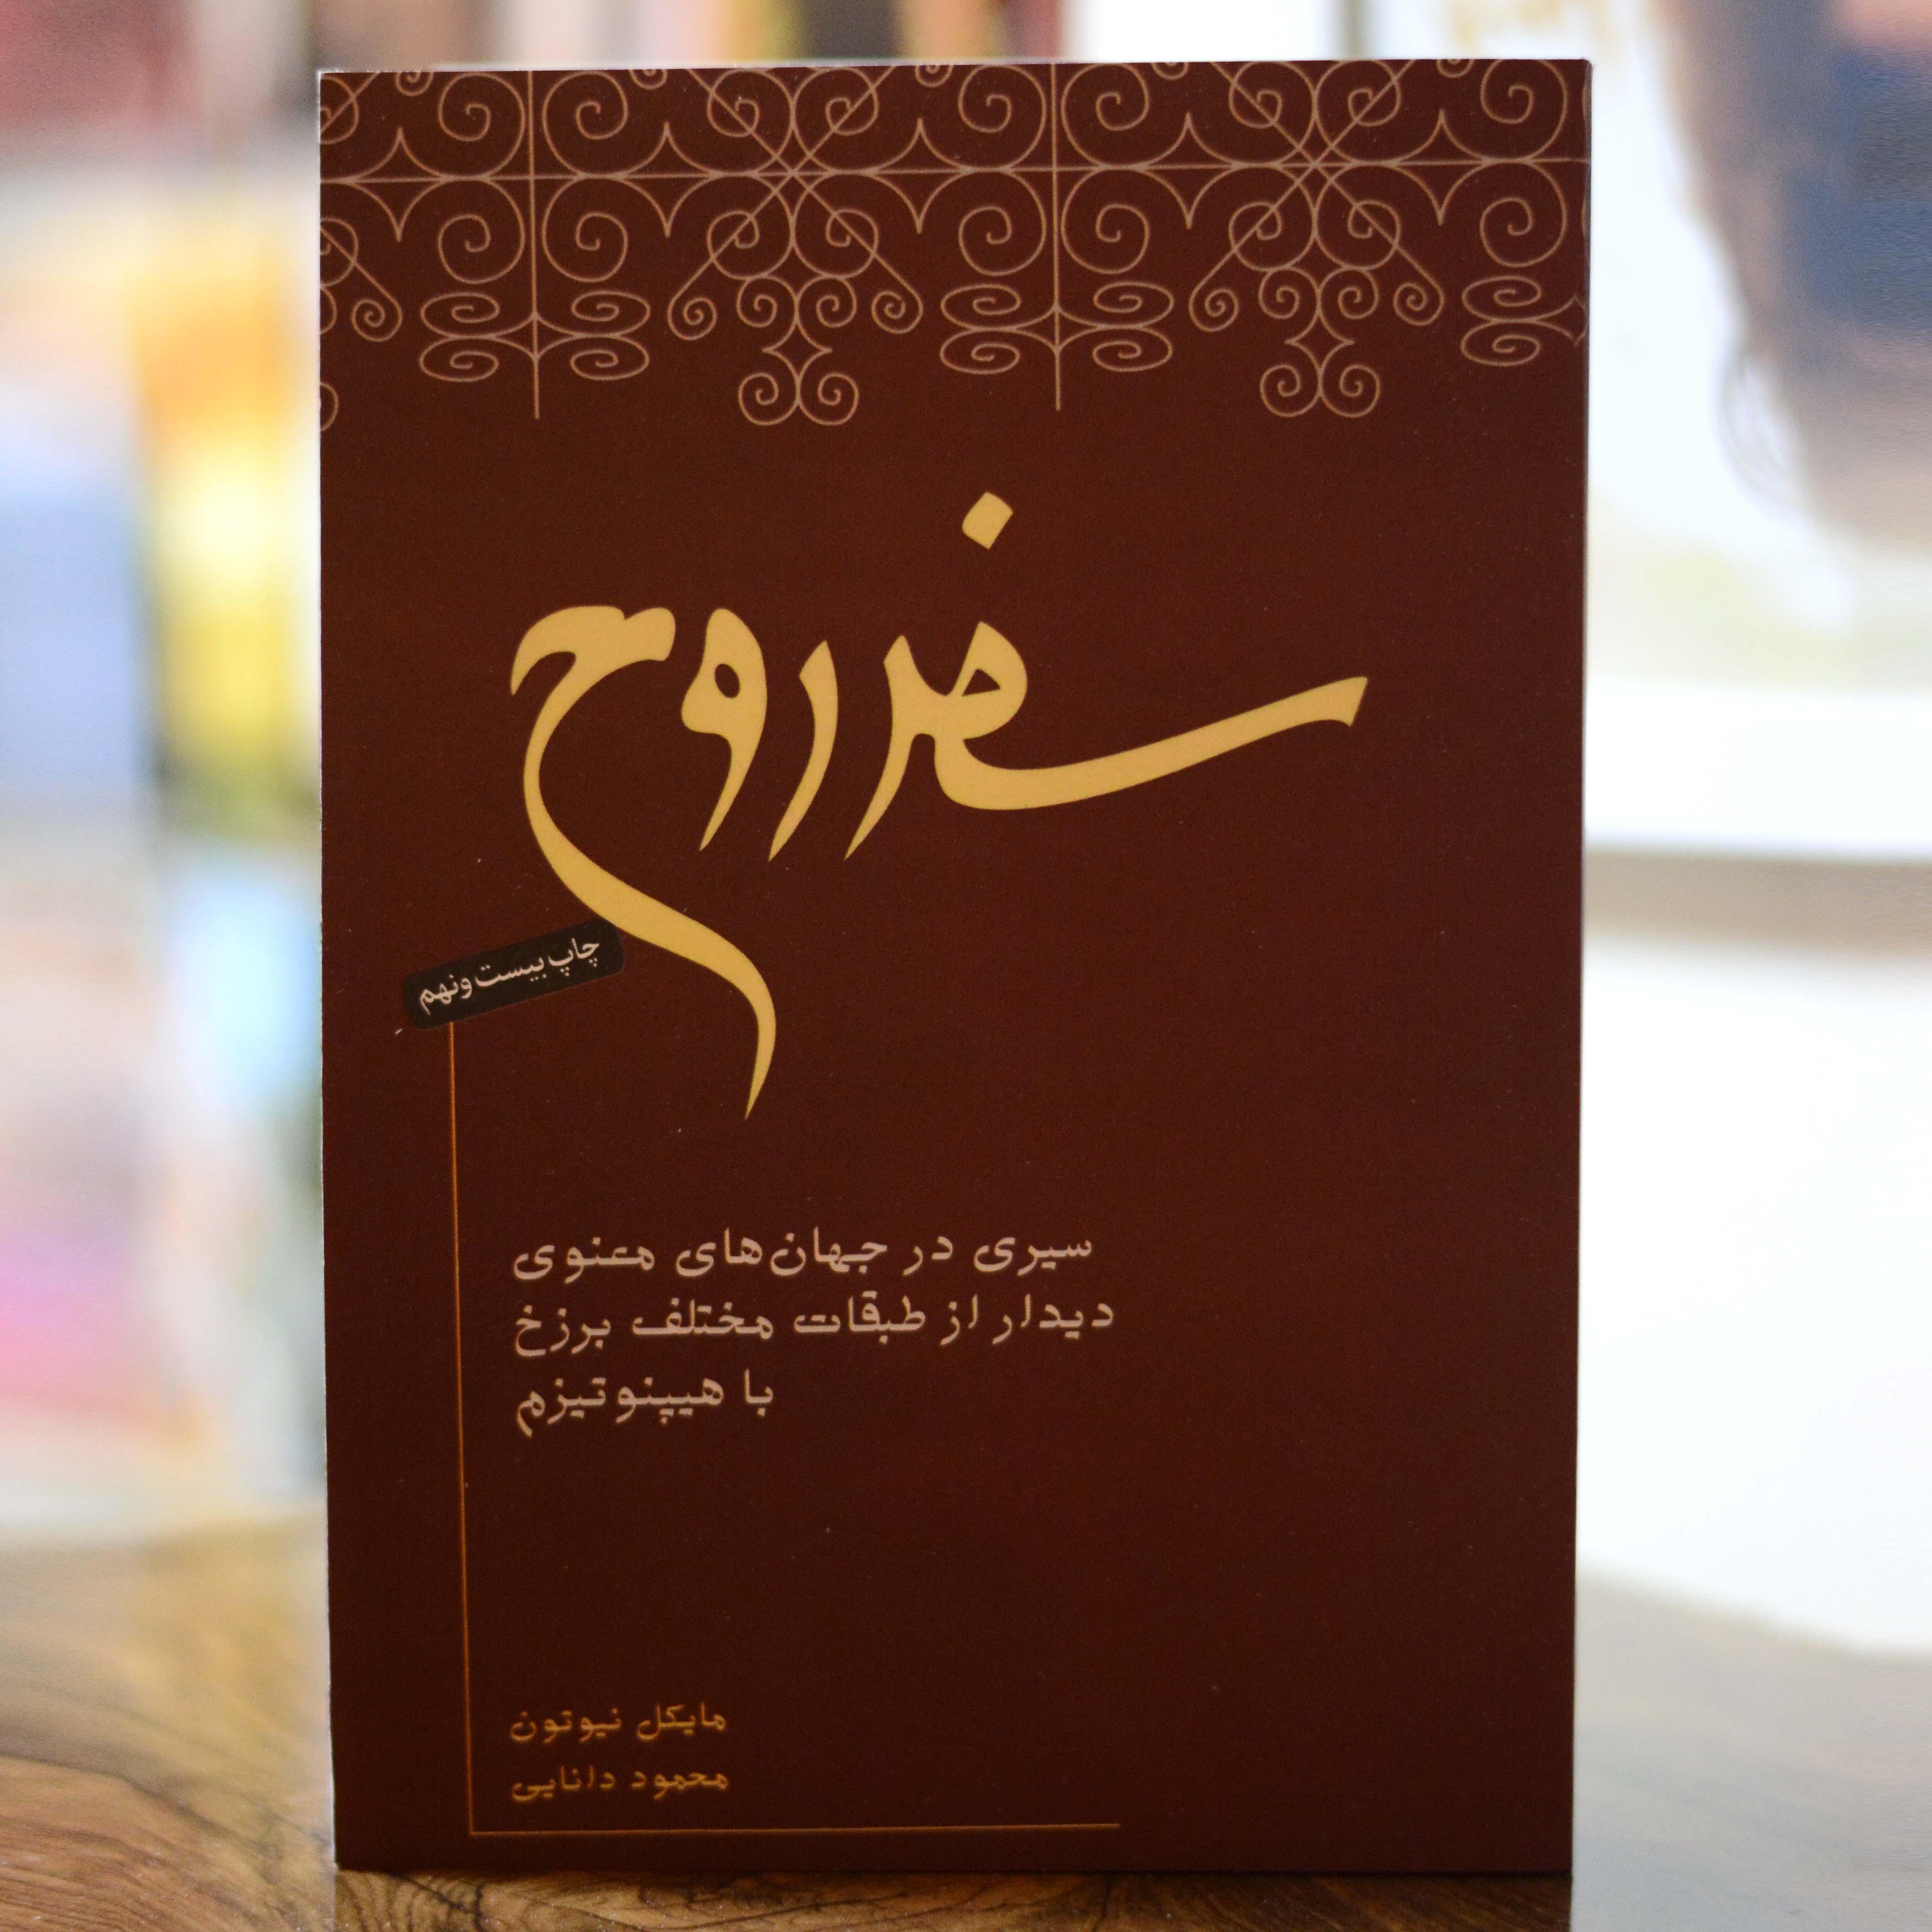 سفر روح
چاپ بیست و نهم
سیری در جهان‌های معنوی
دیدار از طبقات مختلف برزخ
با هیپنوتیزم
مایکل نیوتون
محمود دانایی